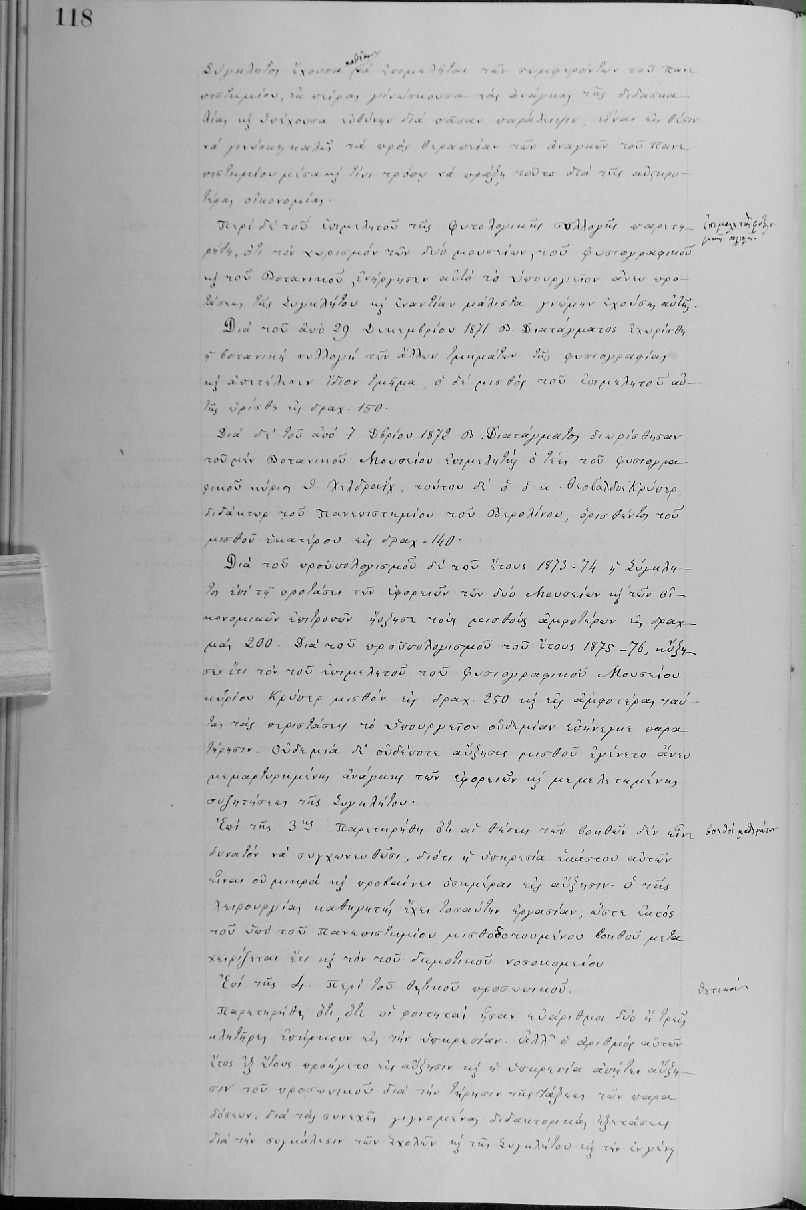 118
καθῆκον
Σύγκλητος ἔχουσα νά ἐπιμελῆται τῶν συμφερόντων τοῦ Πανε
πιστημίου, ἐκ πείρας γινώσκουσα τάς ἀνάγκας τῆς διδασκα
λίας κ ὑπέχουσα εὐθύνην διά πᾶσαν παράλειψιν, εἶναι εἰς θέσιν
νά γινώσκῃ καλῶς τά πρός θεραπείαν τῶν ἀναγκῶν τοῦ Πανε
πιστημίου μέσα κ τίνι τρόπῳ νά πράξῃ τοῦτο διά τῆς αὐστηρο
τέρας οἰκονομίας.
Περί δέ τοῦ ἐπιμελητοῦ τῆς φυτολογικῆς συλλογῆς παρετη
ρήθη, ὅτι τόν χωρισμόν τῶν δύο μουσείων, τοῦ Φυσιογραφικοῦ
κ τοῦ Βοτανικοῦ ἐνήργησεν αὐτό τό Ὑπουργεῖον ἄνευ προ
τάσεως τῆς Συγκλήτου κ ἐναντίαν μάλιστα γνώμην ἐχούσης αὐτῆς.
Διά τοῦ ἀπό 29 Δεκεμβρίου 1871 Β. Διατάγματος ἐχωρίσθη
ἡ βοτανική συλλογή τῶν ἄλλων τμημάτων τῆς φυσιογραφίας
κ ἀπετέλεσεν ἴδιον τμῆμα, ὁ δέ μισθός τοῦ ἐπιμελητοῦ αὐ-
τῆς ὡρίσθη εἰς δραχ. 150.
Διά δέ τοῦ ἀπό 7 8βρίου 1872 Β. Διατάγματος διωρίσθησαν
τοῦ μέν Βοτανικοῦ Μουσείου ἐπιμελητής ὁ τέως τοῦ φυσιογρα-
φικοῦ κύριος Θ. Χελδράιχ, τούτου δέ ὁ κ. Θεοβάλδος Κρύπερ,
διδάκτωρ τοῦ Πανεπιστημίου τοῦ Βερολίνου, ὁρισθέντος τοῦ
μισθοῦ ἑκατέρου εἰς δραχ. 140.
Διά τοῦ προϋπολογισμοῦ δέ τοῦ ἔτους 1873-74 ἡ Σύγκλη-
τος ἐπί τῇ προτάσει τῶν ἐφορειῶν τῶν δύο Μουσείων κ τῶν οἰ-
κονομικῶν ἐπιτροπῶν ηὔξησε τούς μισθούς ἀμφοτέρων εἰς δραχ
μάς 200. Διά τοῦ προϋπολογισμοῦ τοῦ ἔτους 1875-76, ηὔξη-
σεν ἔτι τόν τοῦ ἐπιμελητοῦ τοῦ Φυσιογραφικοῦ Μουσείου
κυρίου Κρύπερ μισθόν εἰς δραχ. 250 κ εἰς ἀμφοτέρας ταύ-
τας τάς περιστάσεις τό Ὑπουργεῖον οὐδεμίαν ἐπήνεγκε παρα
τήρησιν. Οὐδεμία δέ οὐδέποτε αὔξησις μισθοῦ ἐγένετο ἄνευ
μεμαρτυρημένης ἀνάγκης τῶν ἐφορειῶν κ μεμελετημένης
συζητήσεως τῆς Συγκλήτου.
Ἐπί τῆς 3ης. Παρετηρήθη ὅτι αἱ θέσεις τῶν βοηθῶν δέν εἶνε
δυνατόν νά συγχωνευθῶσι, διότι ἡ ὑπηρεσία ἑκάστου αὐτῶν
εἶναι οὐ μικρά κ προβαίνει ὁσημέραι εἰς αὔξησιν. Ὁ τῆς
χειρουργίας καθηγητής ἔχει τοσαύτην ἐργασίαν, ὥστε ἐκτός
τοῦ ὑπό τοῦ Πανεπιστημίου μισθοδοτουμένου βοηθοῦ μετα
χειρίζεται ἔτι κ τόν τοῦ δημοτικοῦ νοσοκομείου
Ἐπί τῆς 4. Περί τοῦ θητικοῦ προσωπικοῦ.
Παρετηρήθη ὅτι, ὅτε οἱ φοιτηταί ἦσαν εὐάριθμοι δύο ἤ τρεῖς
κλητῆρες ἐπήρκουν εἰς τήν ὑπηρεσίαν. Ἀλλ' ὁ ἀριθμός αὐτῶν
ἔτος ἐξ ἔτους προήγετο εἰς αὔξησιν κ ἡ ὑπηρεσία ἀπῄτει αὔξη-
σιν τοῦ προσωπικοῦ διά τήν τήρησιν τῆς τάξεως τῶν παρα
δόσεων, διά τάς συνεχῶς γιγνομένας διδακτορικάς ἐξετάσεις
διά τήν συγκάλεσιν τῶν Σχολῶν κ τῆς Συγκλήτου εἰς τήν ἐν γένει
βοηθοί
θητικόν